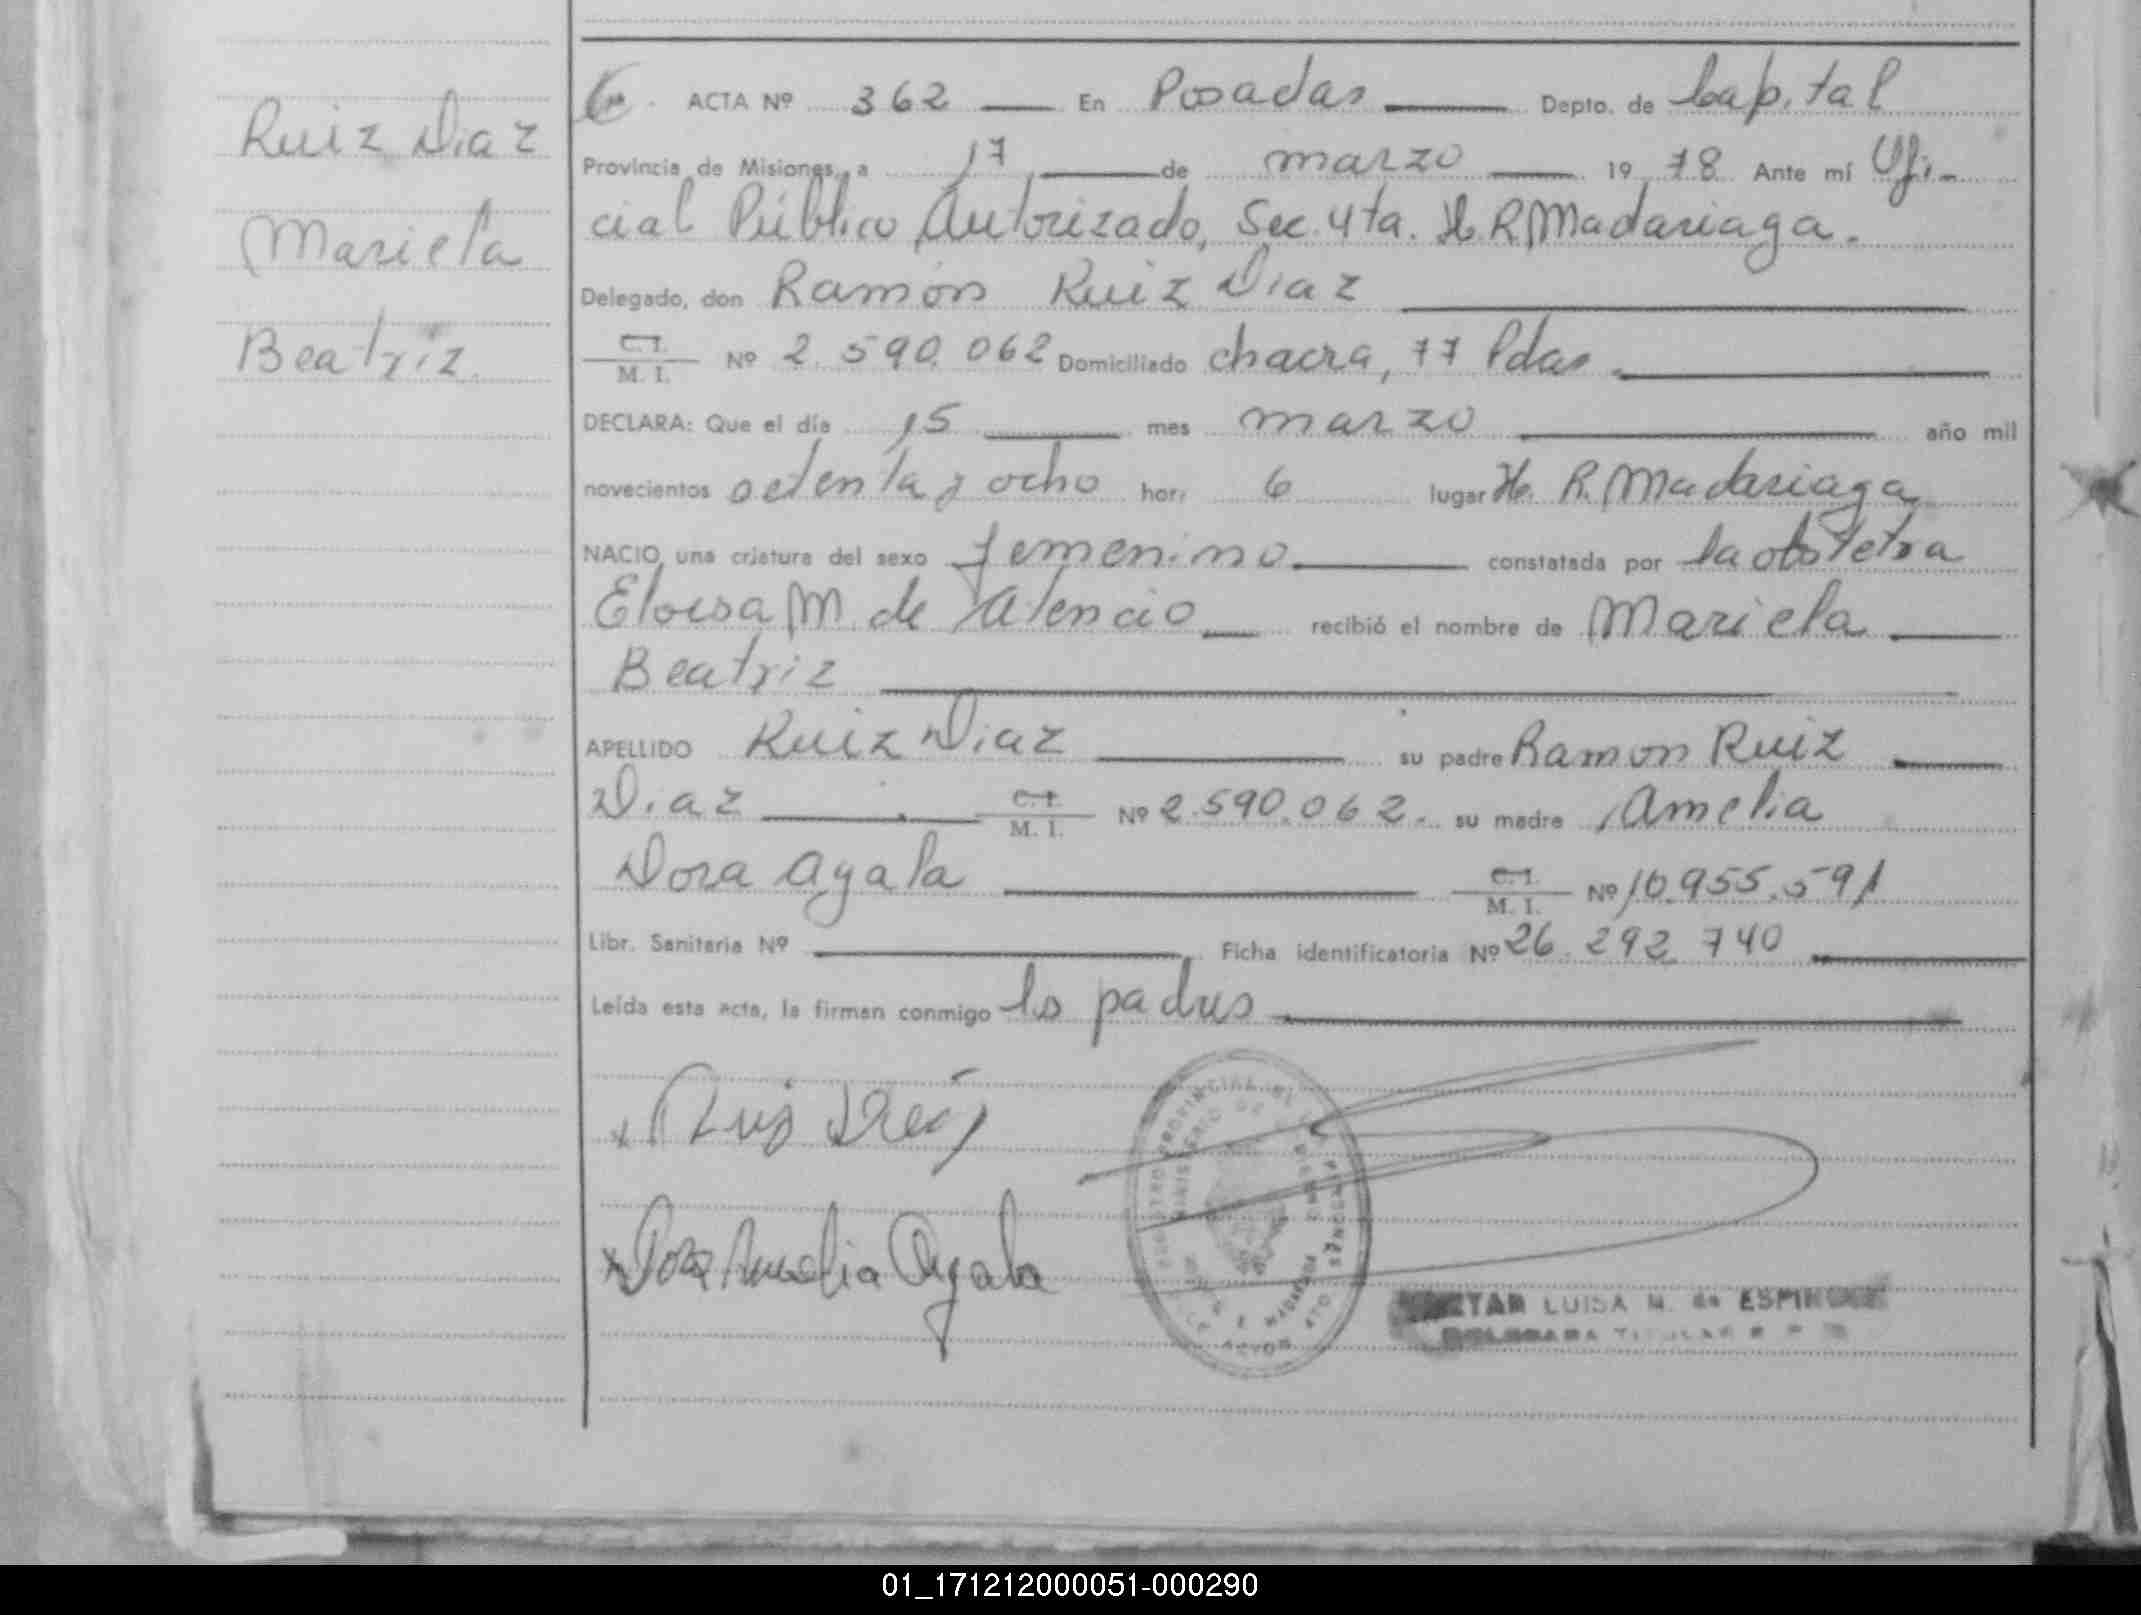 Ruiz Diaz
Mariela
Beatriz
ACTA Nº 362 En Posadas Depto. de Capital
Provincia de Misiones, a 17 de marzo 1978 Ante mí Ofi-
cial Público Autorizado, Sec. 4ta. H. R. Madariaga.
Delegado, don Ramón Ruiz Diaz
C. I.
M. I. Nº 2.590.062 Domiciliado chacra, 77 Pdas.
DECLARA: Que el día 15 mes marzo año mil
novecientos setenta y ocho hor. 6 lugar H. R. Madariaga
NACIO una criatura del sexo femenino constatada por la obstetra
Eloisa M. de Atencio recibió el nombre de Mariela
Beatriz
APELLIDO Ruiz Diaz su padre Ramon Ruiz
Diaz C. I.
M. I. Nº 2.590.062. su madre Amelia
Dora Ayala C. I.
M. I. Nº 10.955.591
Libr. Sanitaria Nº Ficha identificatoria Nº 26.292.740
Leída esta acta, la firman conmigo ls padres
x Ruiz Díaz
x Dora Amelia Ayala
LUISA M. de ESPINDOLA
TITULAR
01_171212000051-000290